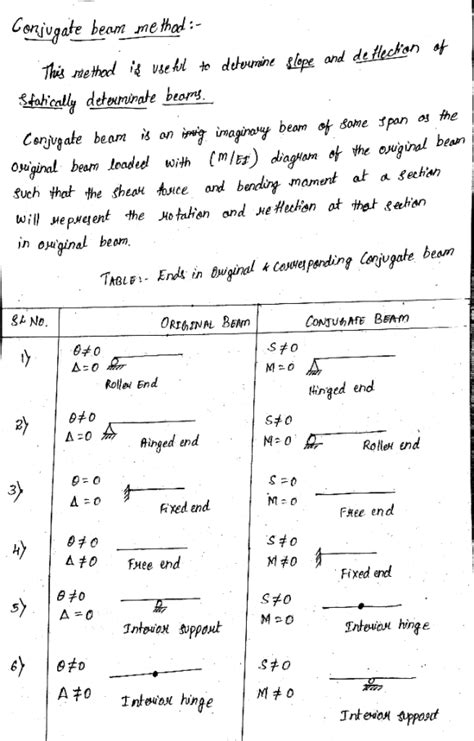 Conjugate beam method:-
This method is useful to determine slope and deflection of
statically determinate beams.
Conjugate beam is an imaginary beam of same span as the
original beam loaded with (M/EI) diagram of the original beam
such that the shear force and bending mament at a section
will represent the rotation and reflection at that section
in original beam.
TABLE:- Ends in Original & Corresponding Conjugate beam
SL No. ORIGINAL BEAM CONJUGATE BEAM
1) θ≠0 S≠0
Δ=0 M=0
Roller End Hinged end
2) θ≠0 S≠0
Δ=0 Hinged end M=0 Roller end
3) θ=0 S=0
Δ=0 Fixed end M=0 Free end
4) θ≠0 S≠0
Δ≠0 Free end M≠0 Fixed end
5) θ≠0 S≠0
Δ=0 M=0
Interior support Interior hinge
6) θ≠0 S≠0
Δ≠0 Interior hinge M≠0
Interior support